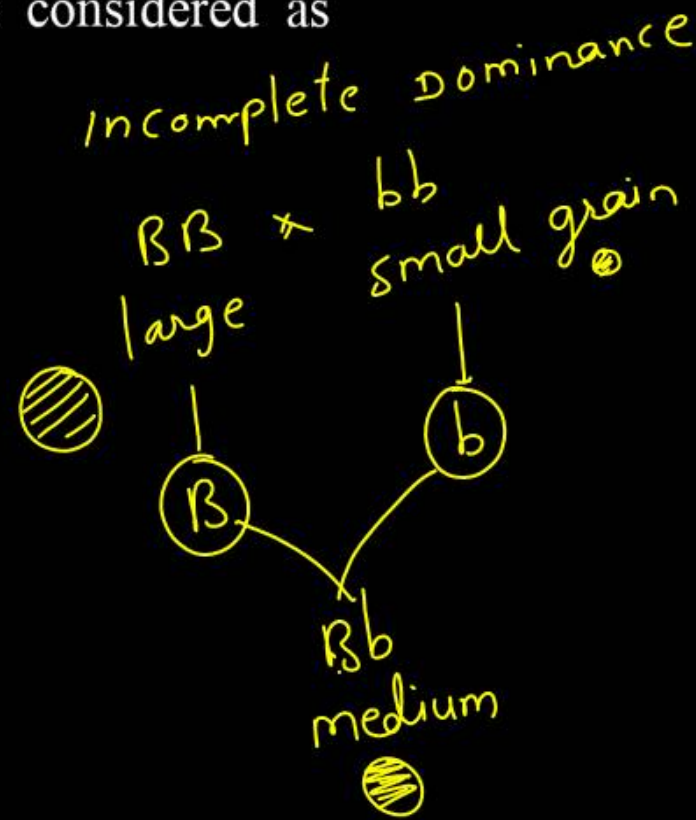 considered as
Incomplete Dominance
BB × bb
large small grain
B b
Bb
medium